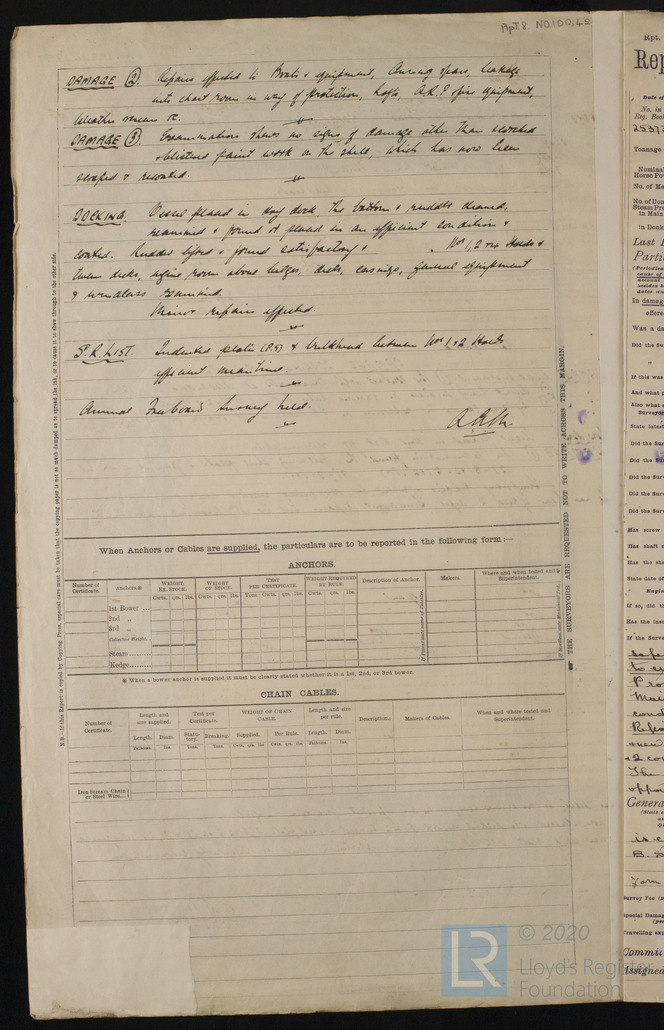 Rpt. 8 No. 100,42
DAMAGE (2) Repairs effected to Boats & equipment, Awning spars, leakage
into chart room in way of protection, Rafts, A.R.P. fire equipment,
Weather screens &c.
DAMAGE (3) Examination shows no signs of damage other than scorched
& blistered paint work on the shell, which has now been
scraped & recoated.
DOCKING. Vessel placed in dry dock the bottom & rudder cleaned,
examined & found or placed in an efficient condition &
coated. Rudder lifted & found satisfactory & Nos 1, 2 Holds &
Tween decks, engine room above bilges, decks, casings, general equipment
& windlass examined.
Minor repairs effected.
S.R. LIST. Indented plates (P.S) & bulkhead between Nos 1 & 2 Holds
efficient meantime.
Annual Freeboard Survey held.
When Anchors or Cables are supplied, the particulars are to be reported in the following form :—
ANCHORS.
Number of Certificate.
Anchors.*
WEIGHT, EX. STOCK.
WEIGHT OF STOCK.
TEST PER CERTIFICATE.
WEIGHT REQUIRED BY RULE.
Description of Anchor.
Makers.
Where and when tested and Superintendent.
Cwts. qrs. lbs. Cwts. qrs. lbs. Tons cwts. qrs. lbs. Cwts. qrs. lbs.
1st Bower ...
2nd „
3rd „
Collective Weight
Stream
Kedge
* When a bower anchor is supplied it must be clearly stated whether it is a 1st, 2nd, or 3rd bower.
CHAIN CABLES.
Number of Certificate.
Length and size supplied.
Test per Certificate.
WEIGHT OF CHAIN CABLE.
Length and size per rule.
Description.
Makers of Cables.
When and where tested and Superintendent.
Length. Diam. Statutory. Breaking. Supplied. Per Rule. Length. Diam.
Fathoms. Ins. Tons. Tons. Cwts. qrs. lbs. Cwts. qrs. lbs. Fathoms. Ins.
Iron Stream Chain or Steel Wire...
N.B.—If this Report is copied by Copying Press, especial care must be taken that the copying paper is not so much damped as to spread the ink, or to cause it to show through to the other side.
☛ THE SURVEYORS ARE REQUESTED NOT TO WRITE ACROSS THIS MARGIN.
Rpt.
Date of
No. in
Reg. Book
Tonnage
Nominal
Horse Po
No. of M
No. of Don
Steam Pre
in Main
in Donk
Last
Parti
In damag
offere
Was a da
Did the Su
If this was
And what p
Also what
Surveyor
State lates
Did the Sur
Did the Su
Did the Sur
Did the Sur
Has screw
Has shaft
Has the sh
State date of
Engin
If so, did th
Has the ins
If the Surve
Genera
is e
Survey Fee (p
Special Damag
Travelling exp
Commit
Assigned
LR
© 2020
Lloyd's Register
Foundation